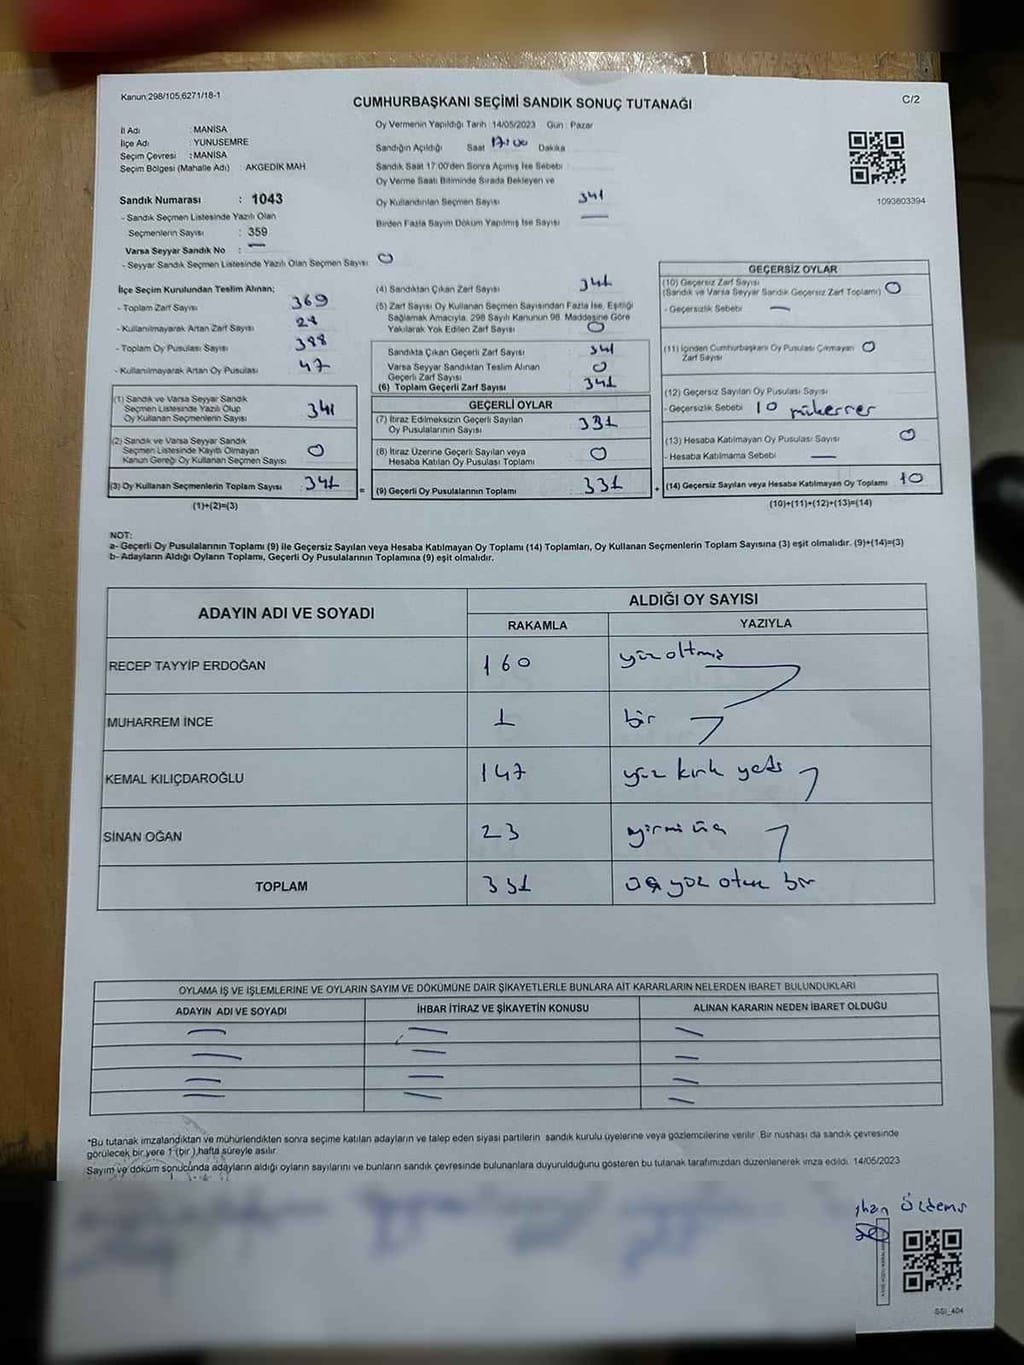 Kanun;298/105,6271/18-1
CUMHURBAŞKANI SEÇİMİ SANDIK SONUÇ TUTANAĞI
C/2
İl Adı : MANİSA
İlçe Adı : YUNUSEMRE
Seçim Çevresi : MANİSA
Seçim Bölgesi (Mahalle Adı) AKGEDİK MAH
Oy Vermenin Yapıldığı Tarih : 14/05/2023 Gün : Pazar
Sandığın Açıldığı Saat 17:00 Dakika
Sandık Saat 17:00'den Sonra Açılmış İse Sebebi
Oy Verme Saati Bitiminde Sırada Bekleyen ve
Oy Kullandırılan Seçmen Sayısı 341
Birden Fazla Sayım Döküm Yapılmış İse Sayısı —
1093803394
Sandık Numarası : 1043
- Sandık Seçmen Listesinde Yazılı Olan
Seçmenlerin Sayısı : 359
Varsa Seyyar Sandık No : —
- Seyyar Sandık Seçmen Listesinde Yazılı Olan Seçmen Sayısı 0
İlçe Seçim Kurulundan Teslim Alınan;
- Toplam Zarf Sayısı 369
- Kullanılmayarak Artan Zarf Sayısı 28
- Toplam Oy Pusulası Sayısı 388
- Kullanılmayarak Artan Oy Pusulası 47
(1) Sandık ve Varsa Seyyar Sandık
Seçmen Listesinde Yazılı Olup
Oy Kullanan Seçmenlerin Sayısı 341
(2) Sandık ve Varsa Seyyar Sandık
Seçmen Listesinde Kayıtlı Olmayan
Kanun Gereği Oy Kullanan Seçmen Sayısı 0
(3) Oy Kullanan Seçmenlerin Toplam Sayısı 341 =
(1)+(2)=(3)
(4) Sandıktan Çıkan Zarf Sayısı 341
(5) Zarf Sayısı Oy Kullanan Seçmen Sayısından Fazla İse, Eşitliği
Sağlamak Amacıyla, 298 Sayılı Kanunun 98. Maddesine Göre
Yakılarak Yok Edilen Zarf Sayısı 0
Sandıkta Çıkan Geçerli Zarf Sayısı 341
Varsa Seyyar Sandıktan Teslim Alınan
Geçerli Zarf Sayısı 0
(6) Toplam Geçerli Zarf Sayısı 341
GEÇERLİ OYLAR
(7) İtiraz Edilmeksizin Geçerli Sayılan
Oy Pusulalarının Sayısı 331
(8) İtiraz Üzerine Geçerli Sayılan veya
Hesaba Katılan Oy Pusulası Toplamı 0
(9) Geçerli Oy Pusulalarının Toplamı 331 +
GEÇERSİZ OYLAR
(10) Geçersiz Zarf Sayısı
(Sandık ve Varsa Seyyar Sandık Geçersiz Zarf Toplamı) 0
- Geçersizlik Sebebi —
(11) İçinden Cumhurbaşkanı Oy Pusulası Çıkmayan
Zarf Sayısı 0
(12) Geçersiz Sayılan Oy Pusulası Sayısı
- Geçersizlik Sebebi 10 mükerrer
(13) Hesaba Katılmayan Oy Pusulası Sayısı 0
- Hesaba Katılmama Sebebi —
(14) Geçersiz Sayılan veya Hesaba Katılmayan Oy Toplamı 10
(10)+(11)+(12)+(13)=(14)
NOT:
a- Geçerli Oy Pusulalarının Toplamı (9) ile Geçersiz Sayılan veya Hesaba Katılmayan Oy Toplamı (14) Toplamları, Oy Kullanan Seçmenlerin Toplam Sayısına (3) eşit olmalıdır. (9)+(14)=(3)
b- Adayların Aldığı Oyların Toplamı, Geçerli Oy Pusulalarının Toplamına (9) eşit olmalıdır.
ADAYIN ADI VE SOYADI
ALDIĞI OY SAYISI
RAKAMLA YAZIYLA
RECEP TAYYİP ERDOĞAN 160 yüz altmış
MUHARREM İNCE 1 bir
KEMAL KILIÇDAROĞLU 147 yüz kırk yedi
SİNAN OĞAN 23 yirmi üç
TOPLAM 331 üç yüz otuz bir
OYLAMA İŞ VE İŞLEMLERİNE VE OYLARIN SAYIM VE DÖKÜMÜNE DAİR ŞİKAYETLERLE BUNLARA AİT KARARLARIN NELERDEN İBARET BULUNDUKLARI
ADAYIN ADI VE SOYADI İHBAR İTİRAZ VE ŞİKAYETİN KONUSU ALINAN KARARIN NEDEN İBARET OLDUĞU
— — —
— — —
— — —
— — —
*Bu tutanak imzalandıktan ve mühürlendikten sonra seçime katılan adayların ve talep eden siyasi partilerin sandık kurulu üyelerine veya gözlemcilerine verilir. Bir nüshası da sandık çevresinde
görülecek bir yere 1 (bir) hafta süreyle asılır.
Sayım ve döküm sonucunda adayların aldığı oyların sayılarını ve bunların sandık çevresinde bulunanlara duyurulduğunu gösteren bu tutanak tarafımızdan düzenlenerek imza edildi. 14/05/2023